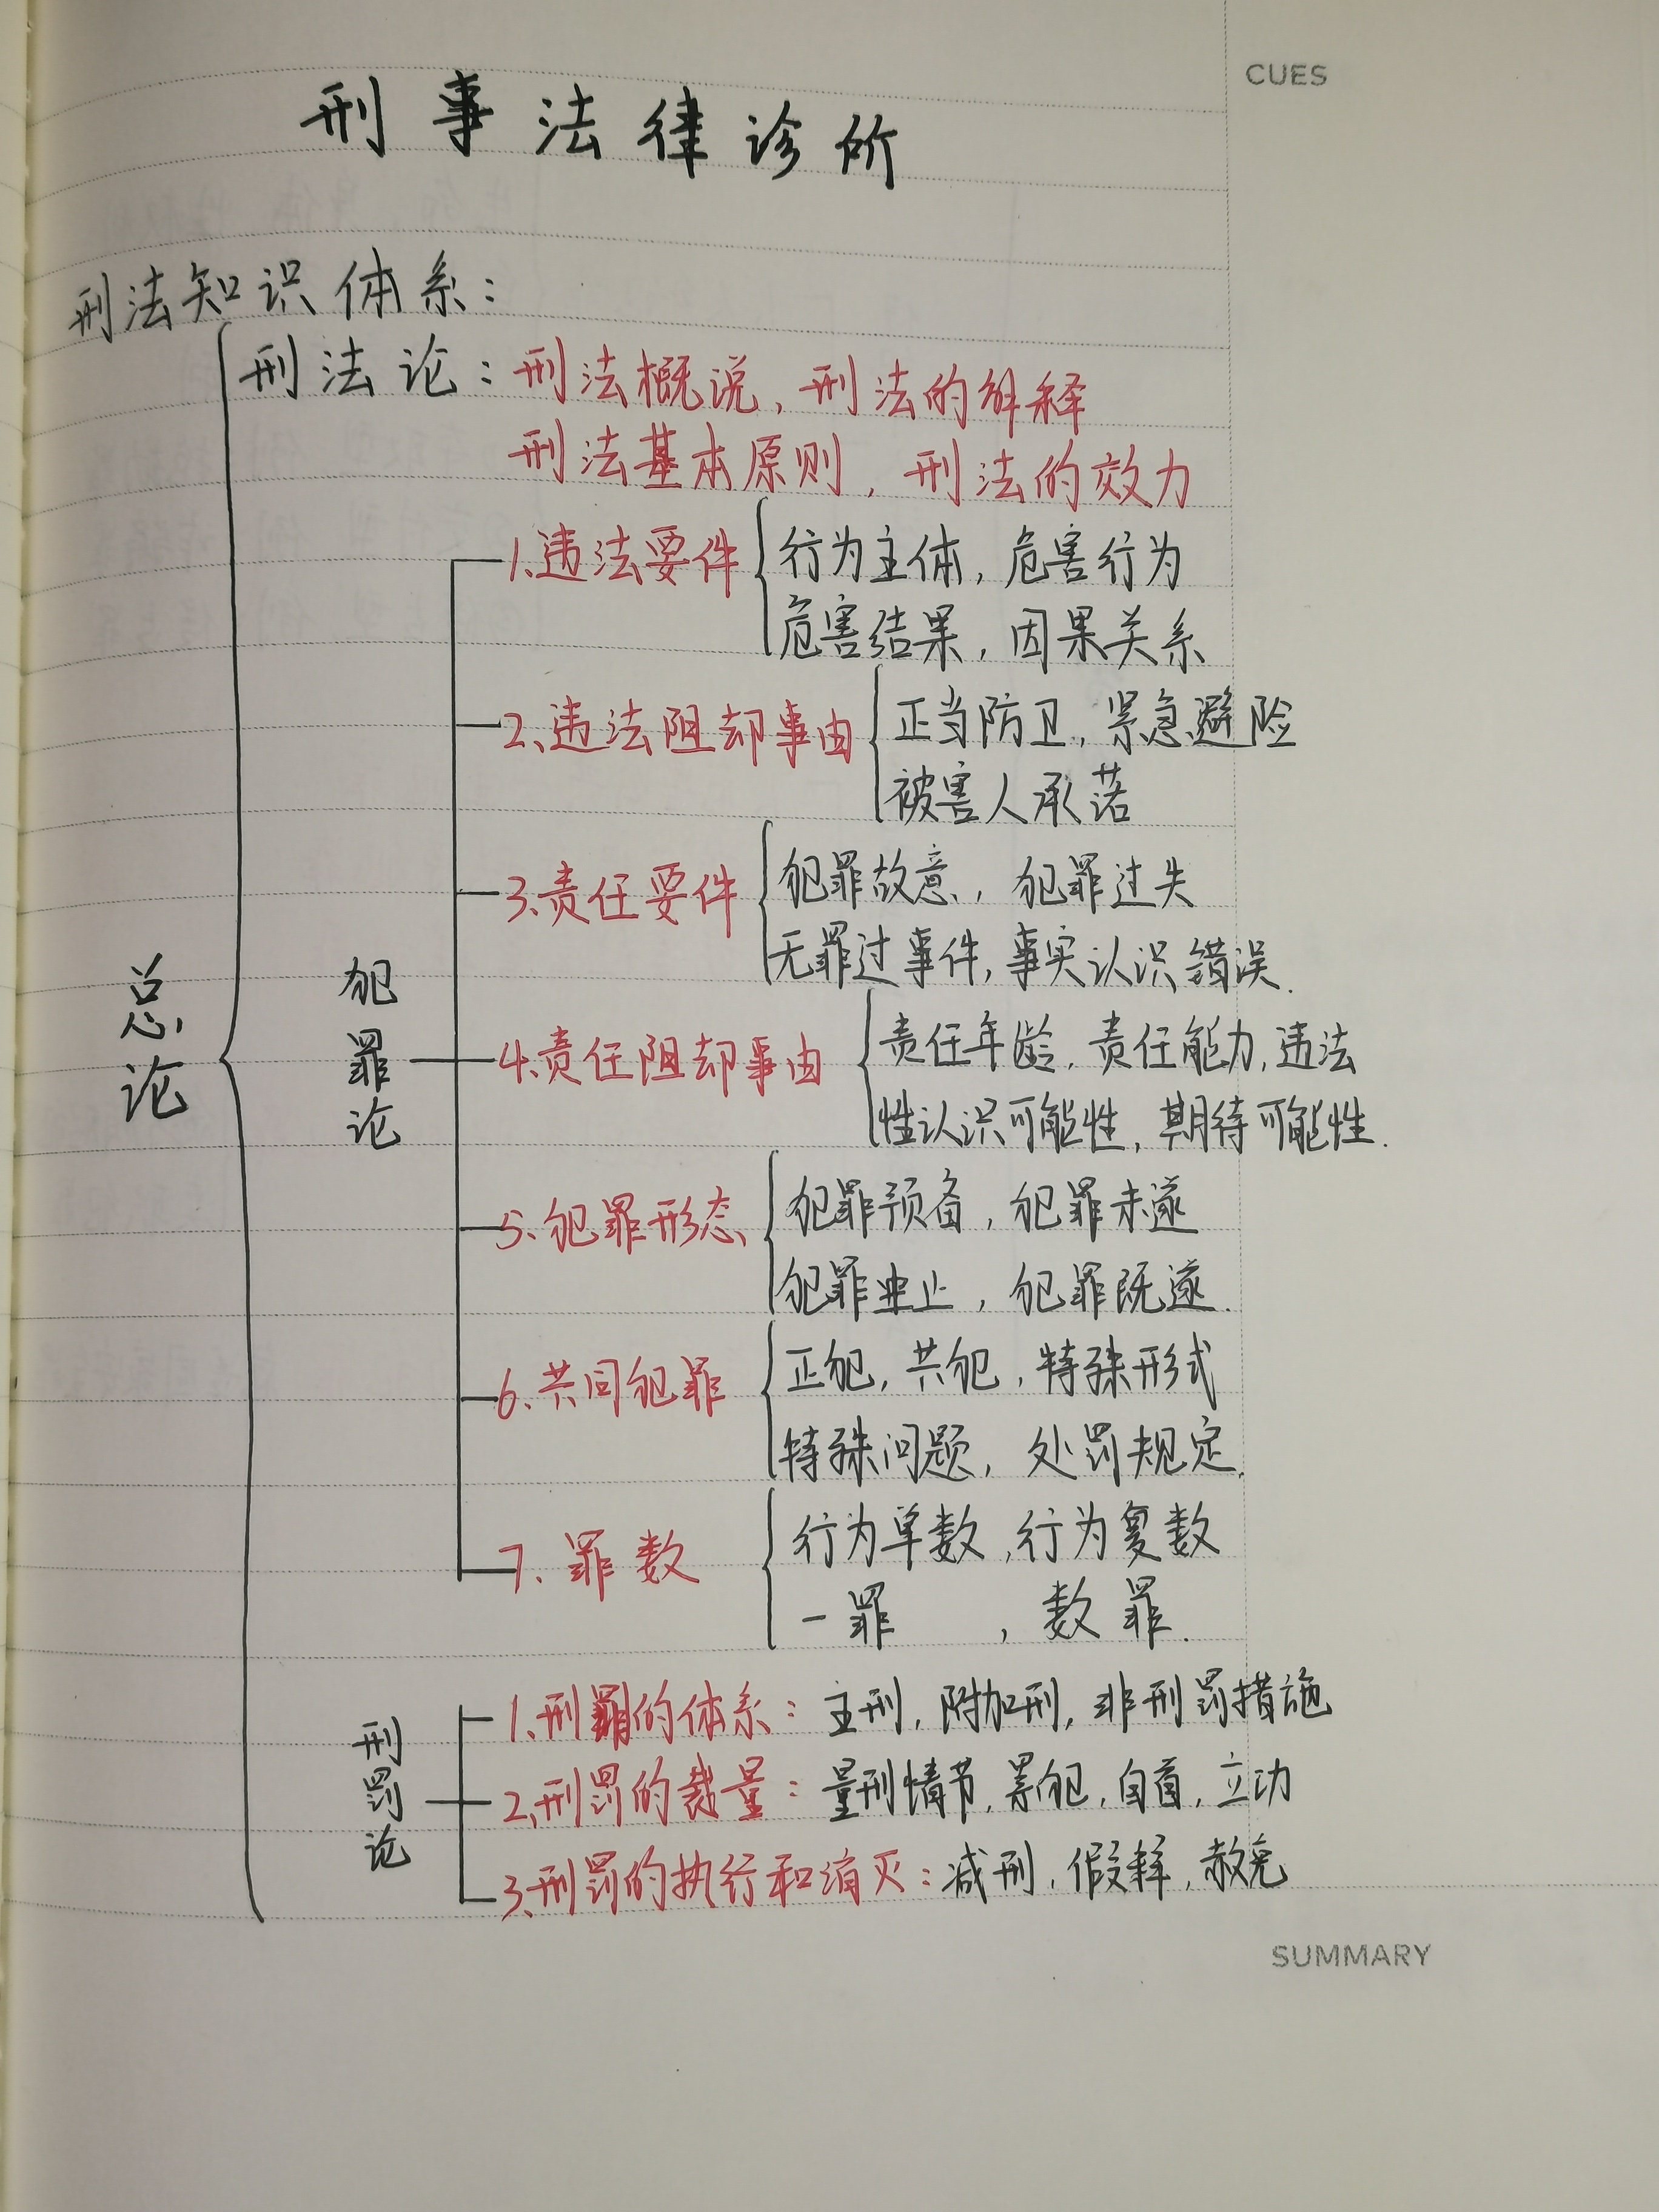 CUES
刑事法律诊所
刑法知识体系：
总论
刑法论：刑法概说，刑法的解释
刑法基本原则，刑法的效力
犯罪论
1、违法要件 行为主体，危害行为
危害结果，因果关系
2、违法阻却事由 正当防卫，紧急避险
被害人承诺
3、责任要件 犯罪故意，犯罪过失
无罪过事件，事实认识错误.
4、责任阻却事由 责任年龄，责任能力，违法
性认识可能性，期待可能性.
5、犯罪形态 犯罪预备，犯罪未遂
犯罪中止，犯罪既遂.
6、共同犯罪 正犯，共犯，特殊形式
特殊问题，处罚规定.
7、罪数 行为单数，行为复数
一罪，数罪.
刑罚论
1、刑罚的体系：主刑，附加刑，非刑罚措施
2、刑罚的裁量：量刑情节，累犯，自首，立功
3、刑罚的执行和消灭：减刑，假释，赦免
SUMMARY